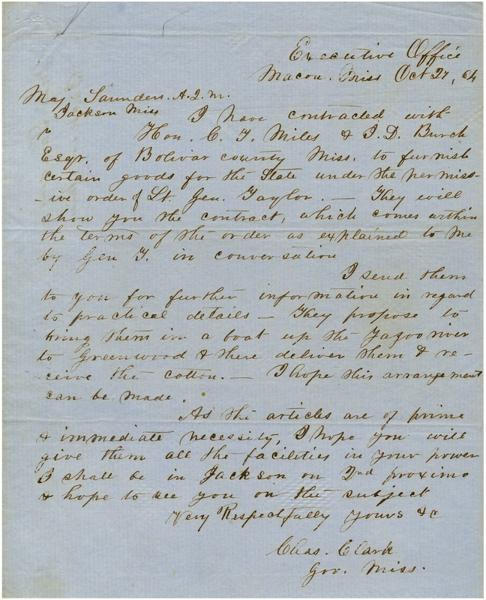 Executive Office
Macon. Miss Oct 27, 64
Maj. Saunders. A.Q.M.
Jackson Miss
I have contracted with
Hon. C. F. Miles & J. D. Burch
Esqr. of Bolivar county Miss. to furnish
certain goods for the State under the permiss-
-ive order of Lt. Gen. Taylor. — They will
show you the contract, which comes within
the terms of the order as explained to me
by Gen T. in conversation
I send them
to you for further information in regard
to practical details — They propose to
bring them in a boat up the Yazoo river
to Greenwood & there deliver them & re-
ceive the cotton. — I hope this arrangement
can be made.
As the articles are of prime
& immediate necessity, I hope you will
give them all the facilities in your power
I shall be in Jackson on 2nd proximo
& hope to see you on the subject
Very Respectfully Yours &c
Chas. Clark
Gov. Miss.